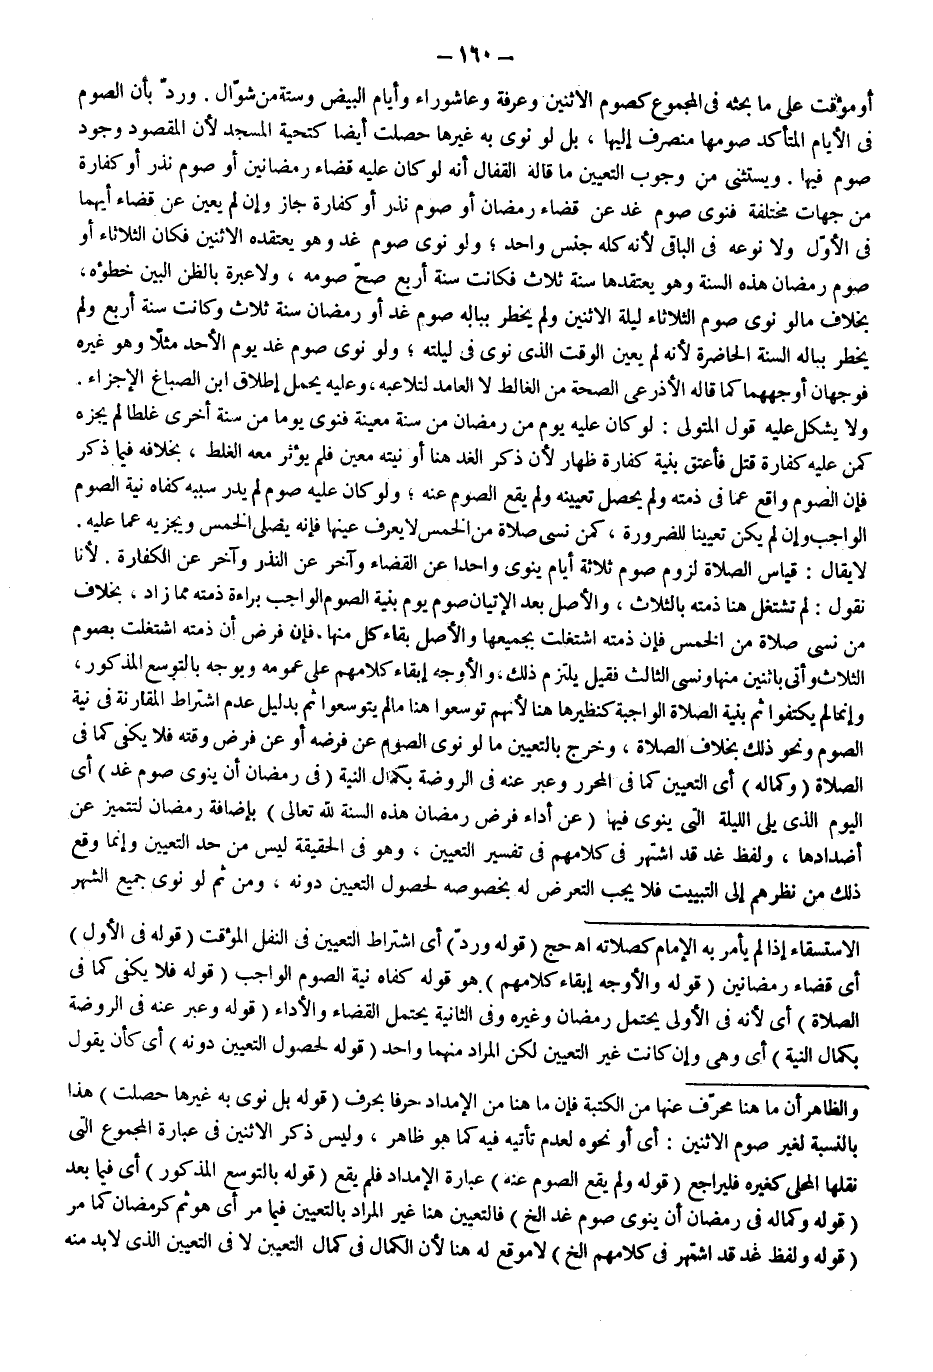 – ١٦٠ –
أو مؤقت على ما بحثه فى المجموع كصوم الاثنين وعرفة وعاشوراء وأيام البيض وستة من شوّال . وردّ بأن الصوم
فى الأيام المتأكد صومها منصرف إليها ، بل لو نوى به غيرها حصلت أيضا كتحية المسجد لأن المقصود وجود
صوم فيها . ويستثنى من وجوب التعيين ما قاله القفال أنه لو كان عليه قضاء رمضانين أو صوم نذر أو كفارة
من جهات مختلفة فنوى صوم غد عن قضاء رمضان أو صوم نذر أو كفارة جاز وإن لم يعين عن قضاء أيهما
فى الأوّل ولا نوعه فى الباقى لأنه كله جنس واحد ؛ ولو نوى صوم غد وهو يعتقده الاثنين فكان الثلاثاء أو
صوم رمضان هذه السنة وهو يعتقدها سنة ثلاث فكانت سنة أربع صحّ صومه ، ولا عبرة بالظن البين خطؤه ،
بخلاف مالو نوى صوم الثلاثاء ليلة الاثنين ولم يخطر بباله صوم غد أو رمضان سنة ثلاث وكانت سنة أربع ولم
يخطر بباله السنة الحاضرة لأنه لم يعين الوقت الذى نوى فى ليلته ؛ ولو نوى صوم غد يوم الأحد مثلا وهو غيره
فوجهان أوجههما كما قاله الأذرعى الصحة من الغالط لا العامد لتلاعبه ، وعليه يحمل إطلاق ابن الصباغ الإجزاء .
ولا يشكل عليه قول المتولى : لو كان عليه يوم من رمضان من سنة معينة فنوى يوما من سنة أخرى غلطا لم يجزه
كمن عليه كفارة قتل فأعتق بنية كفارة ظهار لأن ذكر الغد هنا أو نيته معين فلم يؤثر معه الغلط ، بخلافه فيما ذكر
فإن الصوم واقع عما فى ذمته ولم يحصل تعيينه ولم يقع الصوم عنه ؛ ولو كان عليه صوم لم يدر سببه كفاه نية الصوم
الواجب وإن لم يكن تعيينا للضرورة ، كمن نسى صلاة من الخمس لا يعرف عينها فإنه يصلى الخمس ويجزيه عما عليه .
لا يقال : قياس الصلاة لزوم صوم ثلاثة أيام ينوى واحدا عن القضاء وآخر عن النذر وآخر عن الكفارة . لأنا
نقول : لم تشتغل هنا ذمته بالثلاث ، والأصل بعد الإتيان صوم يوم بنية الصوم الواجب براءة ذمته مما زاد ، بخلاف
من نسى صلاة من الخمس فإن ذمته اشتغلت بجميعها والأصل بقاء كل منها . فإن فرض أن ذمته اشتغلت بصوم
الثلاث وأتى باثنين منها ونسى الثالث فقيل يلتزم ذلك ، والأوجه إبقاء كلامهم على عمومه ويوجه بالتوسع المذكور ،
وإنما لم يكتفوا ثم بنية الصلاة الواجبة كنظيرها هنا لأنهم توسعوا هنا مالم يتوسعوا ثم بدليل عدم اشتراط المقارنة فى نية
الصوم ونحو ذلك بخلاف الصلاة ، وخرج بالتعيين ما لو نوى الصوم عن فرضه أو عن فرض وقته فلا يكفى كما فى
الصلاة ( وكماله ) أى التعيين كما فى المحرر وعبر عنه فى الروضة بكمال النية ( فى رمضان أن ينوى صوم غد ) أى
اليوم الذى يلى الليلة التى ينوى فيها ( عن أداء فرض رمضان هذه السنة لله تعالى ) بإضافة رمضان لتتميز عن
أضدادها ، ولفظ غد قد اشتهر فى كلامهم فى تفسير التعيين ، وهو فى الحقيقة ليس من حد التعيين وإنما وقع
ذلك من نظرهم إلى التبييت فلا يجب التعرض له بخصوصه لحصول التعيين دونه ، ومن ثم لو نوى جميع الشهر
الاستسقاء إذا لم يأمر به الإمام كصلاته اهـ حج ( قوله وردّ ) أى اشتراط التعيين فى النفل المؤقت ( قوله فى الأول )
أى قضاء رمضانين ( قوله والأوجه إبقاء كلامهم ) هو قوله كفاه نية الصوم الواجب ( قوله فلا يكفى كما فى
الصلاة ) أى لأنه فى الأولى يحتمل رمضان وغيره وفى الثانية يحتمل القضاء والأداء ( قوله وعبر عنه فى الروضة
بكمال النية ) أى وهى وإن كانت غير التعيين لكن المراد منهما واحد ( قوله لحصول التعيين دونه ) أى كأن يقول
والظاهر أن ما هنا محرّف عنها من الكتبة فإن ما هنا من الإمداد حرفا بحرف ( قوله بل نوى به غيرها حصلت ) هذا
بالنسبة لغير صوم الاثنين : أى أو نحوه لعدم تأتيه فيه كما هو ظاهر ، وليس ذكر الاثنين فى عبارة المجموع التى
نقلها المحلى كغيره فليراجع ( قوله ولم يقع الصوم عنه ) عبارة الإمداد فلم يقع ( قوله بالتوسع المذكور ) أى فيما بعد
( قوله وكماله فى رمضان أن ينوى صوم غد الخ ) فالتعيين هنا غير المراد بالتعيين فيما مر أى هو ثم كرمضان كما مر
( قوله ولفظ غد قد اشتهر فى كلامهم الخ ) لا موقع له هنا لأن الكمال فى كمال التعيين لا فى التعيين الذى لابد منه